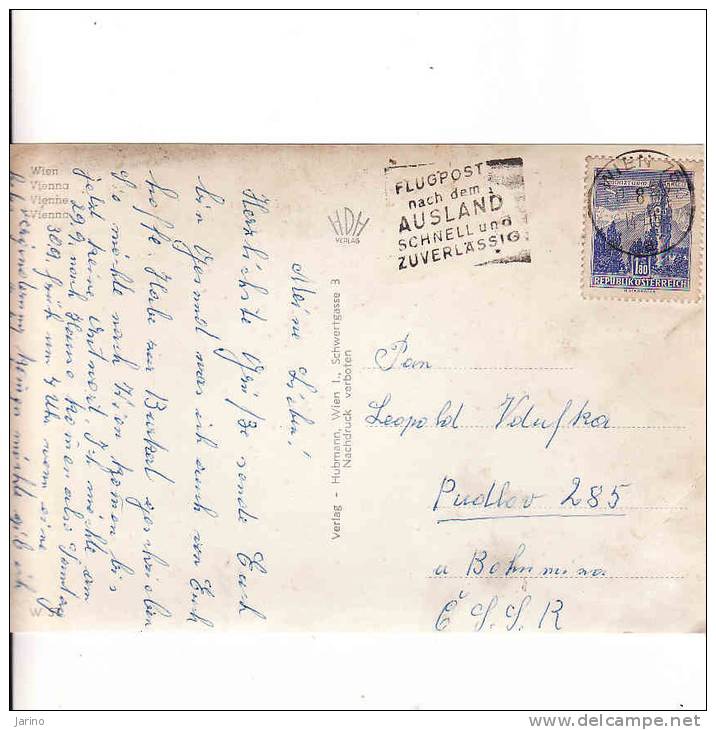 Wien
Vienna
Vienne
Vienna
Meine Lieben!
Herzlichste Grüße sende Euch
bin Gesund was ich auch von Euch
hoffe. Habe zur Burkal geschrieben
sie möchte nach Wien komen bis
jetzt keine Antwort. Ich möchte am
29.9 nach Hause komen also Sontag
309 früh um 4 Uhr wenn eine
möchte
W
HDH
VERLAG
Verlag - Hubmann, Wien I., Schwertgasse 3
Nachdruck verboten
FLUGPOST
nach dem
AUSLAND
SCHNELL und
ZUVERLÄSSIG
WIEN
8
1.80
REPUBLIK ÖSTERREICH
Pan
Leopold Vdufka
Pudlov 285
u Bohumina
Č.S.S.R
Jarino
delcampe.net